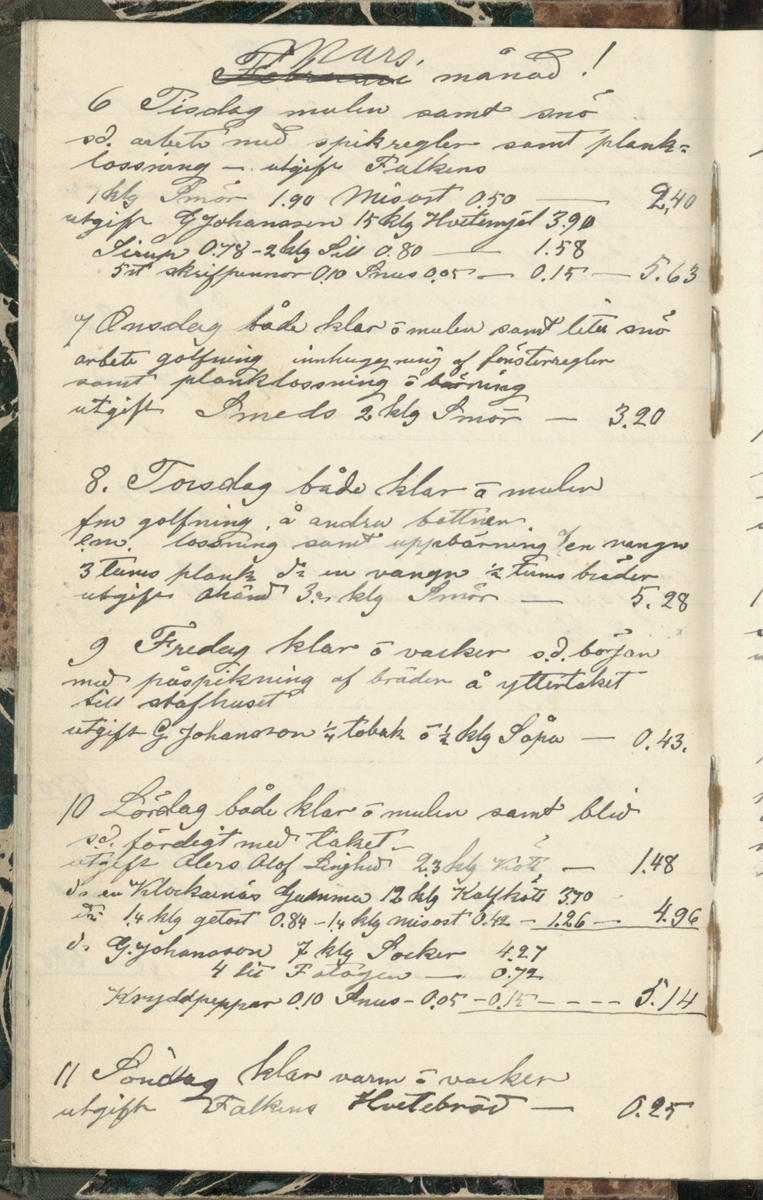 Mars.
Februari månad!
6 Tisdag mulen samt snö
sd. arbete med spikregler samt plank=
lossning — utgift Falkens
1 klg Smör 1.90 Misost 0.50 — 2,40
utgift G Johansson 15 klg Hvetemjöl 3.90
Sirup 0.78 - 2 klg Sill 0.80 — 1.58
5 st skrifpennor 0.10 Snus 0.05 — 0.15 — 5.63
7 Onsdag både klar ö mulen samt litet snö
arbete golfning innhuggning af fönsterregler
samt planklossning ö bärning
utgift Smeds 2 klg Smör — 3.20
8. Torsdag både klar ö mulen
fm golfning å andra bottnen.
em. lossning samt uppbärning af en vangn
3 tums plank do en vangn 1/2 tums bräder
utgift klg Smör — 5.28
9 Fredag klar ö vacker sd. början
med påspikning af bräder å yttertaket
till stafhuset
utgift G Johansson 1/4 tobak ö 1/2 klg Såpa — 0.43.
10 Lördag både klar ö mulen samt blid
sd. färdigt med taket —
utgift Olers Olof Linghed 2.3 klg Kött — 1.48
do en Klockarnäs Gumma 12 klg Kalfkött 3.70
do 1.4 klg getost 0.84 - 1.4 klg misost 0.42 - 1.26 — 4.96
do G. Johansson 7 klg Socker 4.27
4 lit Fotogen — 0.72
Kryddpeppar 0.10 Snus - 0.05 - 0.15 - - - - 5.14
11 Söndag klar varm ö vacker
utgift Falkens Hvetebröd — 0.25